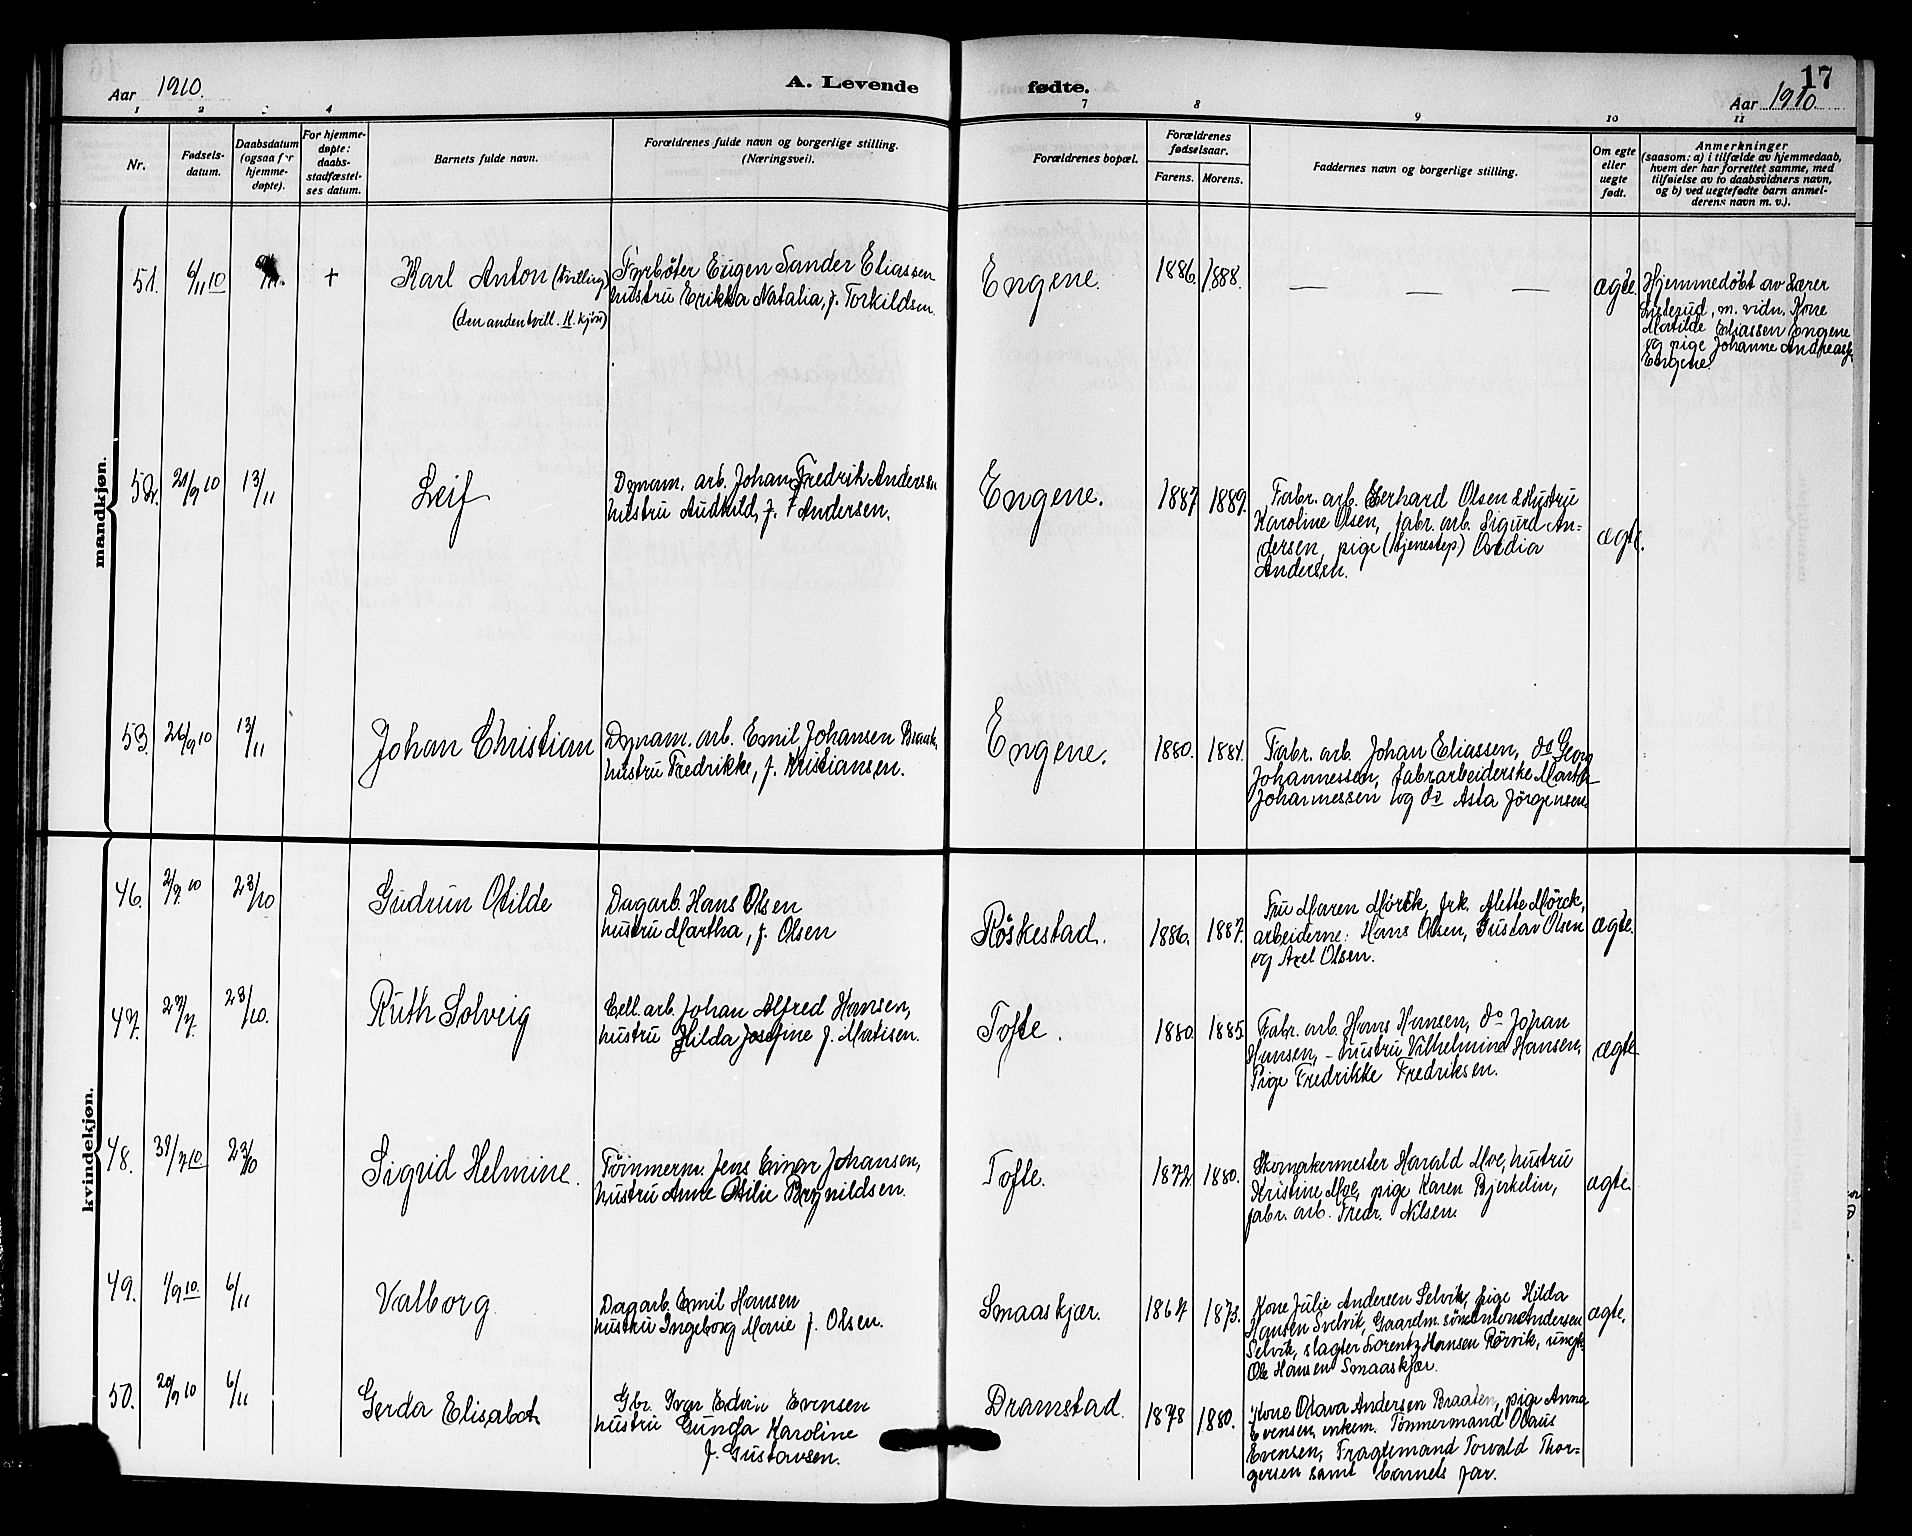 17
Aar 1910.
A. Levende
fødte.
Aar 1910.
1 2 3 4
7 8 9 10 11
Nr.
Fødsels-
datum.
Daabsdatum
(ogsaa for
hjemme-
døpte).
For hjemme-
døpte:
daabs-
stadfæstel-
ses datum.
Barnets fulde navn.
Forældrenes fulde navn og borgerlige stilling.
(Næringsveil.
Forældrenes bopæl.
Forældrenes
fødselsaar.
Farens. Morens.
Faddernes navn og borgerlige stilling.
Om egte
eller
uegte
født.
Anmerkninger
(saasom: a) i tilfælde av hjemmedaab,
hvem der har forrettet samme, med
tilføielse av to daabsvidners navn,
og b) ved uegtefødte barn anmel-
derens navn m. v.).
mandkjøn.
51. 6/11 10 +
Karl Anton (tvilling)
(den anden tvill. K. kjön)
Fyrbøter Eugen Sander Eliassen
hustru Erikka Natalia, f. Torkildsen.
Engene. 1886. 1888. — — — ægte.
Hjemmedøbt av Lærer
Listerud, m. vidn. Kone
Matilde Eliassen Engene
og pige Johanne Andreas
Engene.
52. 21/9 10 13/11
Leif
Dynam. arb. Johan Fredrik Andersen
hustru Audhild, f. Andersen.
Engene. 1887 1889.
Fabr. arb. Gerhard Olsen & Hustru
Karoline Olsen, fabr. arb. Sigurd An-
dersen, pige (tjenestep) Ovedia
Andersen.
ægte.
53. 26/9 10 13/11
Johan Christian
Dynam. arb. Emil Johansen
hustru Fredrikke, f. Kristiansen.
Engene. 1880. 1884.
Fabr. arb. Johan Eliassen, do Georg
Johannessen, fabrarbeiderske Marta
Johannessen og do Asta Jörgensen.
kvindekjøn.
46. 2/9 10 23/10
Gudrun Otilde
Dagarb. Hans Olsen
hustru Martha, f. Olsen
Röskestad. 1886. 1887.
Fru Maren Mörck, frk. Alette Mörck,
arbeiderne: Hans Olsen, Gustav Olsen
og Axel Olsen.
ægte.
47. 23/10
Ruth Solveig
Cell. arb. Johan Alfred Hansen,
hustru Hilda Josefine f. Matisen.
Tofte. 1880. 1885.
Fabr. arb. Hans Hansen, do Johan
Hansen, - hustru Vilhelmine Hansen,
Pige Fredrikke Fredriksen.
ægte
48. 23/10
Sigrid Helmine.
Tömmerm. Jens Einar Johansen,
hustru Anne Otilie Brynildsen.
Tofte. 1872 1880.
Skomakermester Harald Moe, hustru
Kristine Moe, pige Karen Bjerkelin,
fabr. arb. Fredr. Nilsen.
ægte.
49. 1/9 10. 6/11
Valborg
Dagarb. Emil Hansen
hustru Ingeborg Marie f. Olsen.
Smaaskjær. 1864 1873.
Kone Julie Andersen Selvik, pige Hilda
Hansen Svelvik, Gaardm. sön Anton Andersen
Selvik, slagter Lorentz Hansen Rörvik, ungk.
Ole Hansen Smaaskjær.
ægte.
50. 20/9 10 6/11
Gerda Elisabet
Gbr. Iver Edvin Evensen
hustru Gunda Karoline
f. Gustavsen.
Dramstad. 1878 1880.
Kone Olava Andersen Braaten, pige Anna
Evensen, enkem. Tömmermand Olaus
Evensen, Fragtemand Torvald Thor-
gersen samt barnets far.